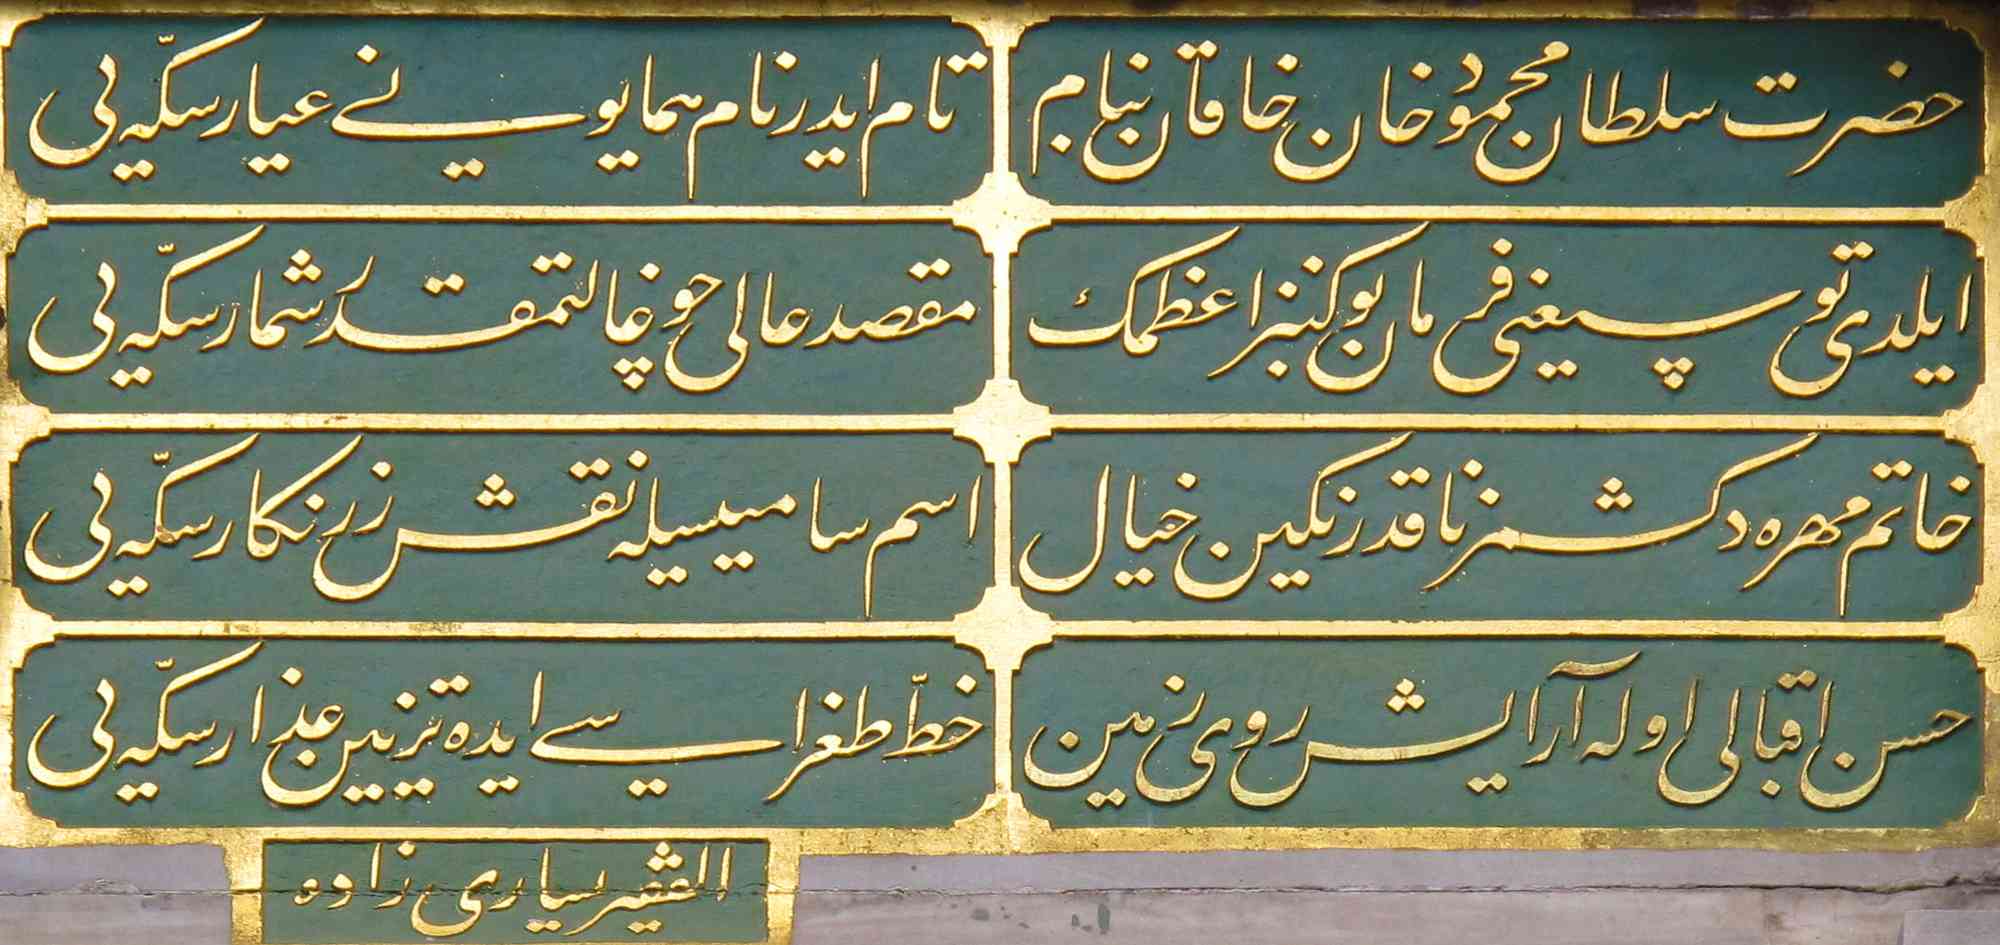 حضرت سلطان محمود خان خاقان بنام
تام ایدر نام همایونی عیار سکّه یی
ایلدی توسیغنی فرمان بو کنبرا عظمك
مقصد عالی چوغالتمقدر شمار سکّه یی
خاتم مهره دكشمز ناقدر نكین خیال
اسم سامیسیله نقش زرنكار سکّه یی
حسن اقبالی اوله آرایش روی زمین
خطّ طغراسی ایده تزیین عذار سکّه یی
الفقیر یساری زاده